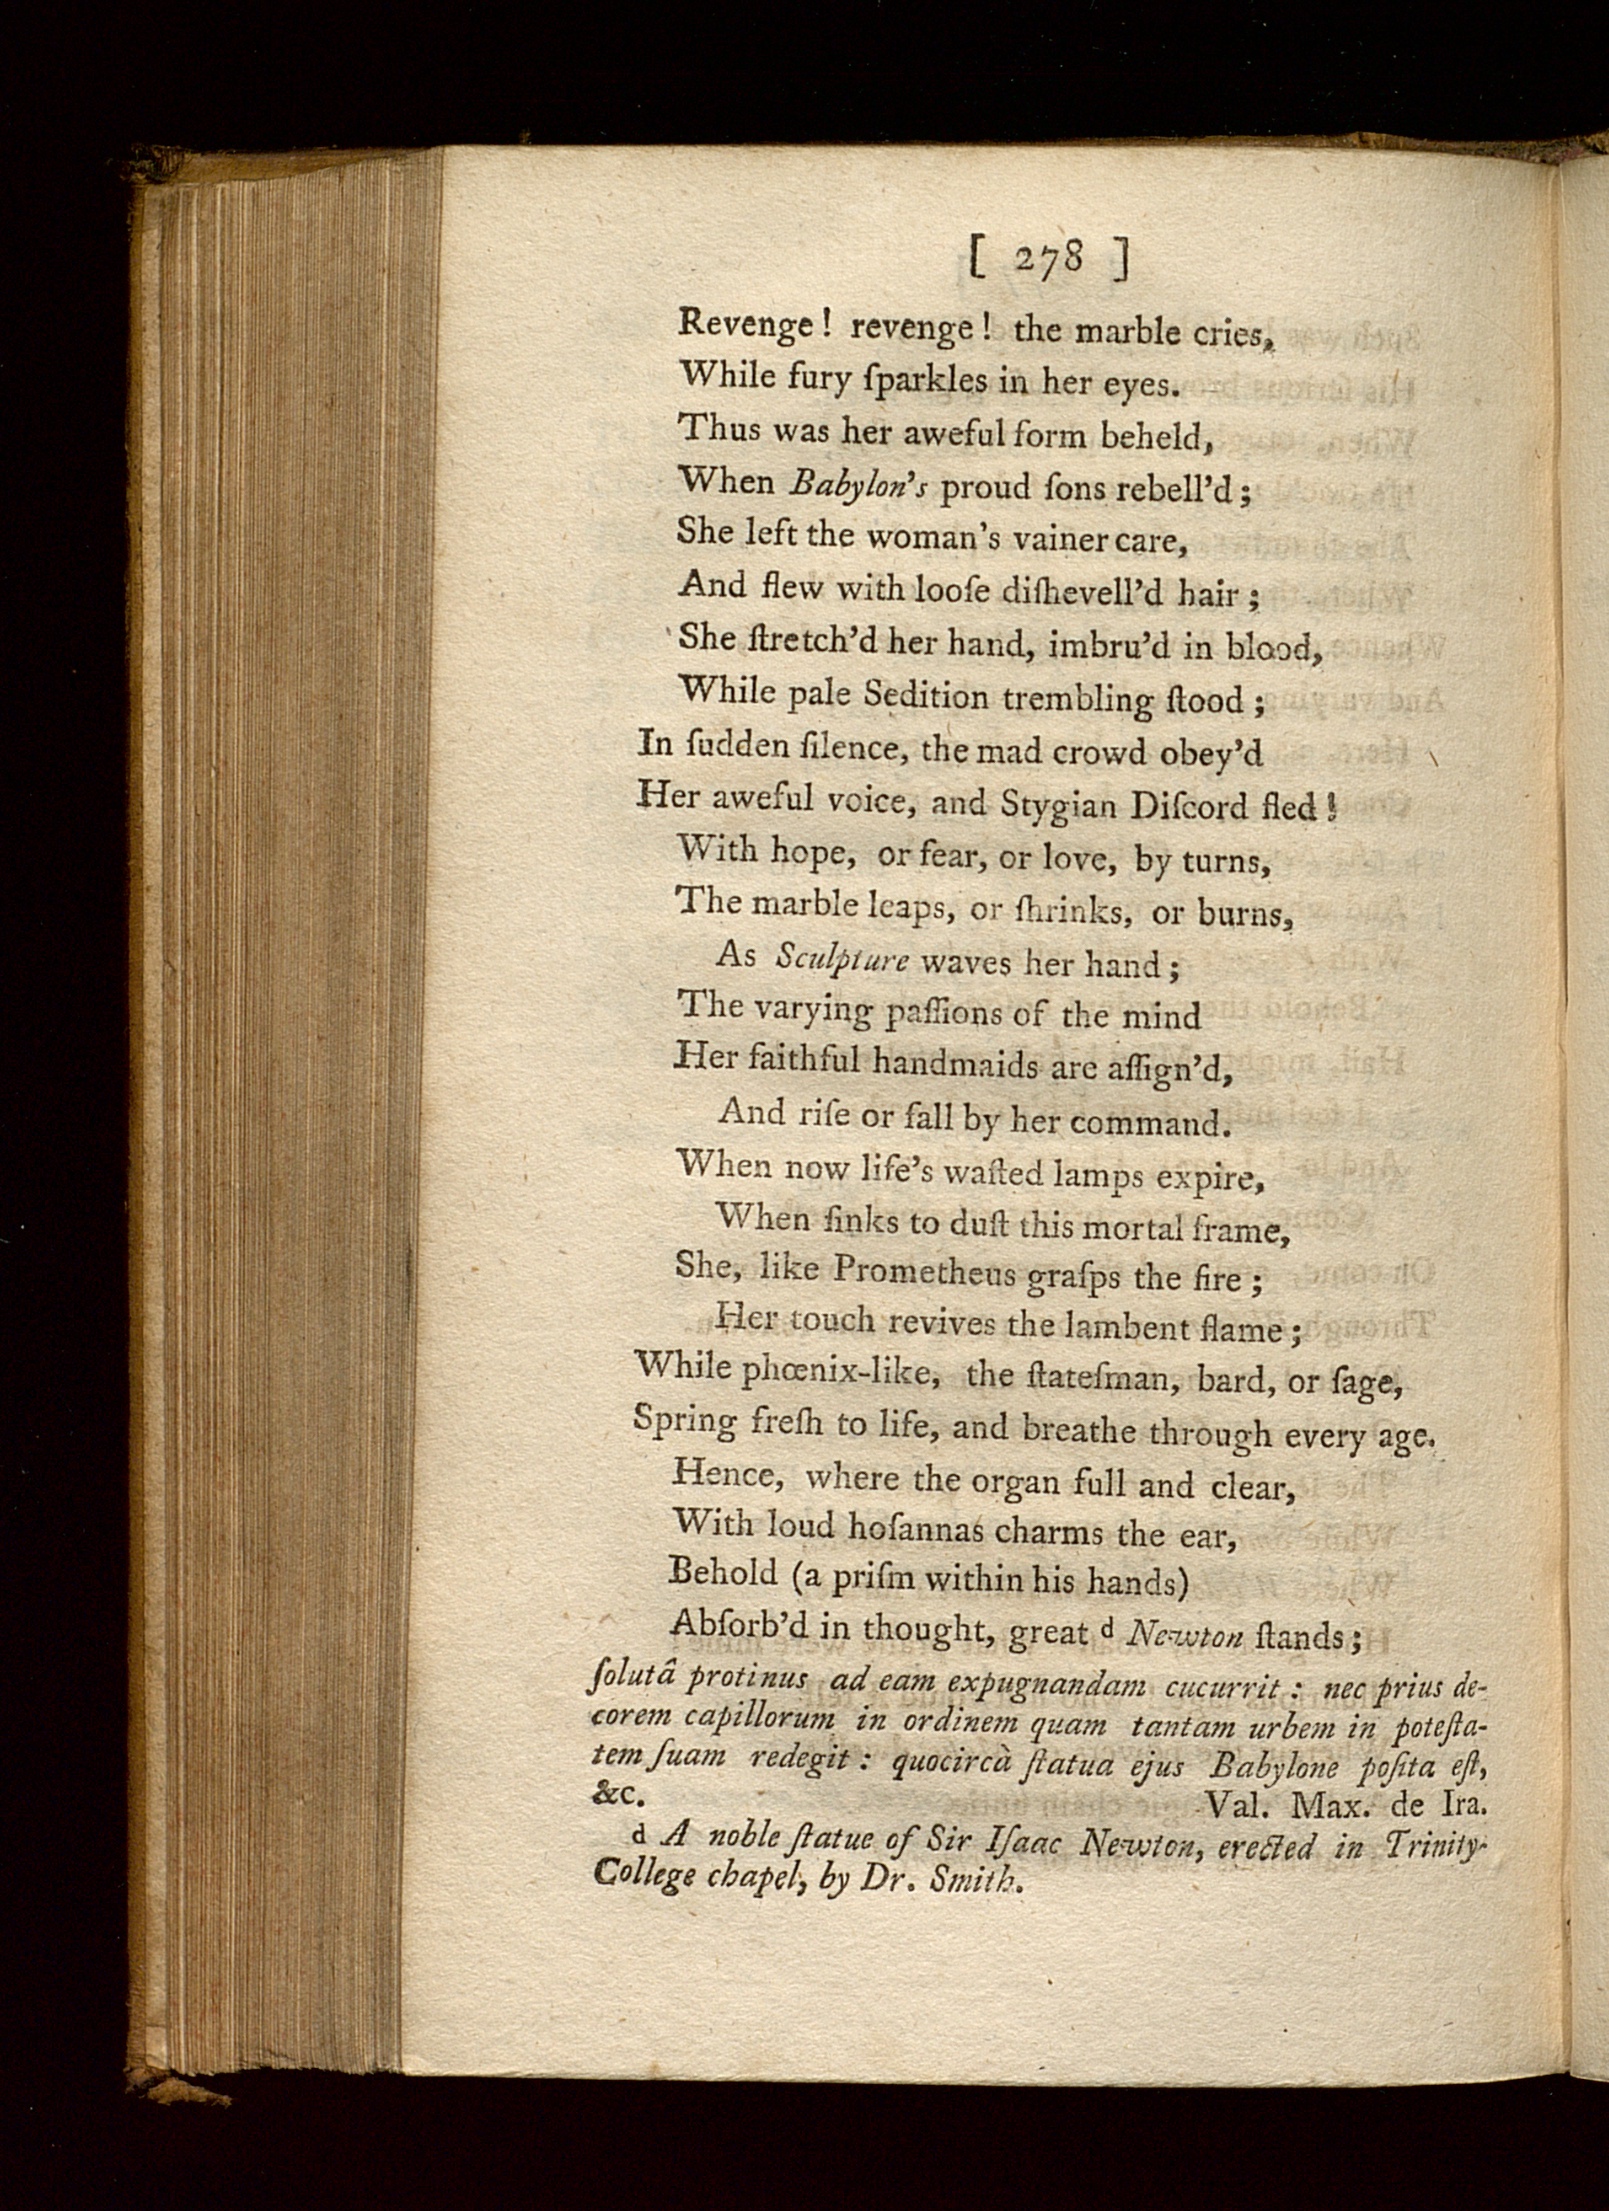 [ 278 ]
Revenge! revenge! the marble cries,
While fury ſparkles in her eyes.
Thus was her aweful form beheld,
When Babylon's proud ſons rebell'd;
She left the woman's vainer care,
And flew with looſe diſhevell'd hair;
She ſtretch'd her hand, imbru'd in blood,
While pale Sedition trembling ſtood;
In ſudden ſilence, the mad crowd obey'd
Her aweful voice, and Stygian Diſcord fled!
With hope, or fear, or love, by turns,
The marble leaps, or ſhrinks, or burns,
As Sculpture waves her hand;
The varying paſſions of the mind
Her faithful handmaids are aſſign'd,
And riſe or fall by her command.
When now life's waſted lamps expire,
When ſinks to duſt this mortal frame,
She, like Prometheus graſps the fire;
Her touch revives the lambent flame;
While phœnix-like, the ſtateſman, bard, or ſage,
Spring freſh to life, and breathe through every age.
Hence, where the organ full and clear,
With loud hoſannas charms the ear,
Behold (a priſm within his hands)
Abſorb'd in thought, great d Newton ſtands;
ſolutâ protinus ad eam expugnandam cucurrit: nec prius de-
corem capillorum in ordinem quam tantam urbem in poteſta-
tem ſuam redegit: quocircà ſtatua ejus Babylone poſita eſt,
&c. Val. Max. de Ira.
d A noble ſtatue of Sir Iſaac Newton, erected in Trinity-
College chapel, by Dr. Smith.